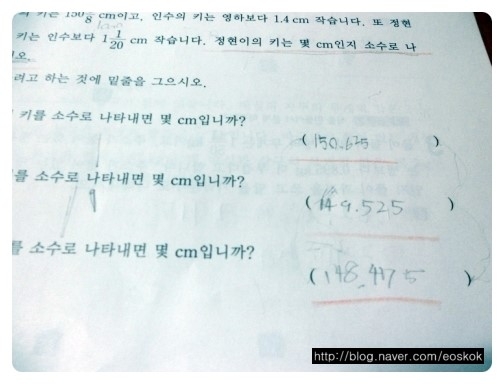 키는 150 8 cm이고, 인수의 키는 영하보다 1.4 cm 작습니다. 또 정현
키는 인수보다 1 1/20 cm 작습니다. 정현이의 키는 몇 cm인지 소수로 나
오.
려고 하는 것에 밑줄을 그으시오.
키를 소수로 나타내면 몇 cm입니까?
( 150.625 )
를 소수로 나타내면 몇 cm입니까?
( 149.525 )
를 소수로 나타내면 몇 cm입니까?
( 148.475 )
http://blog.naver.com/eoskok